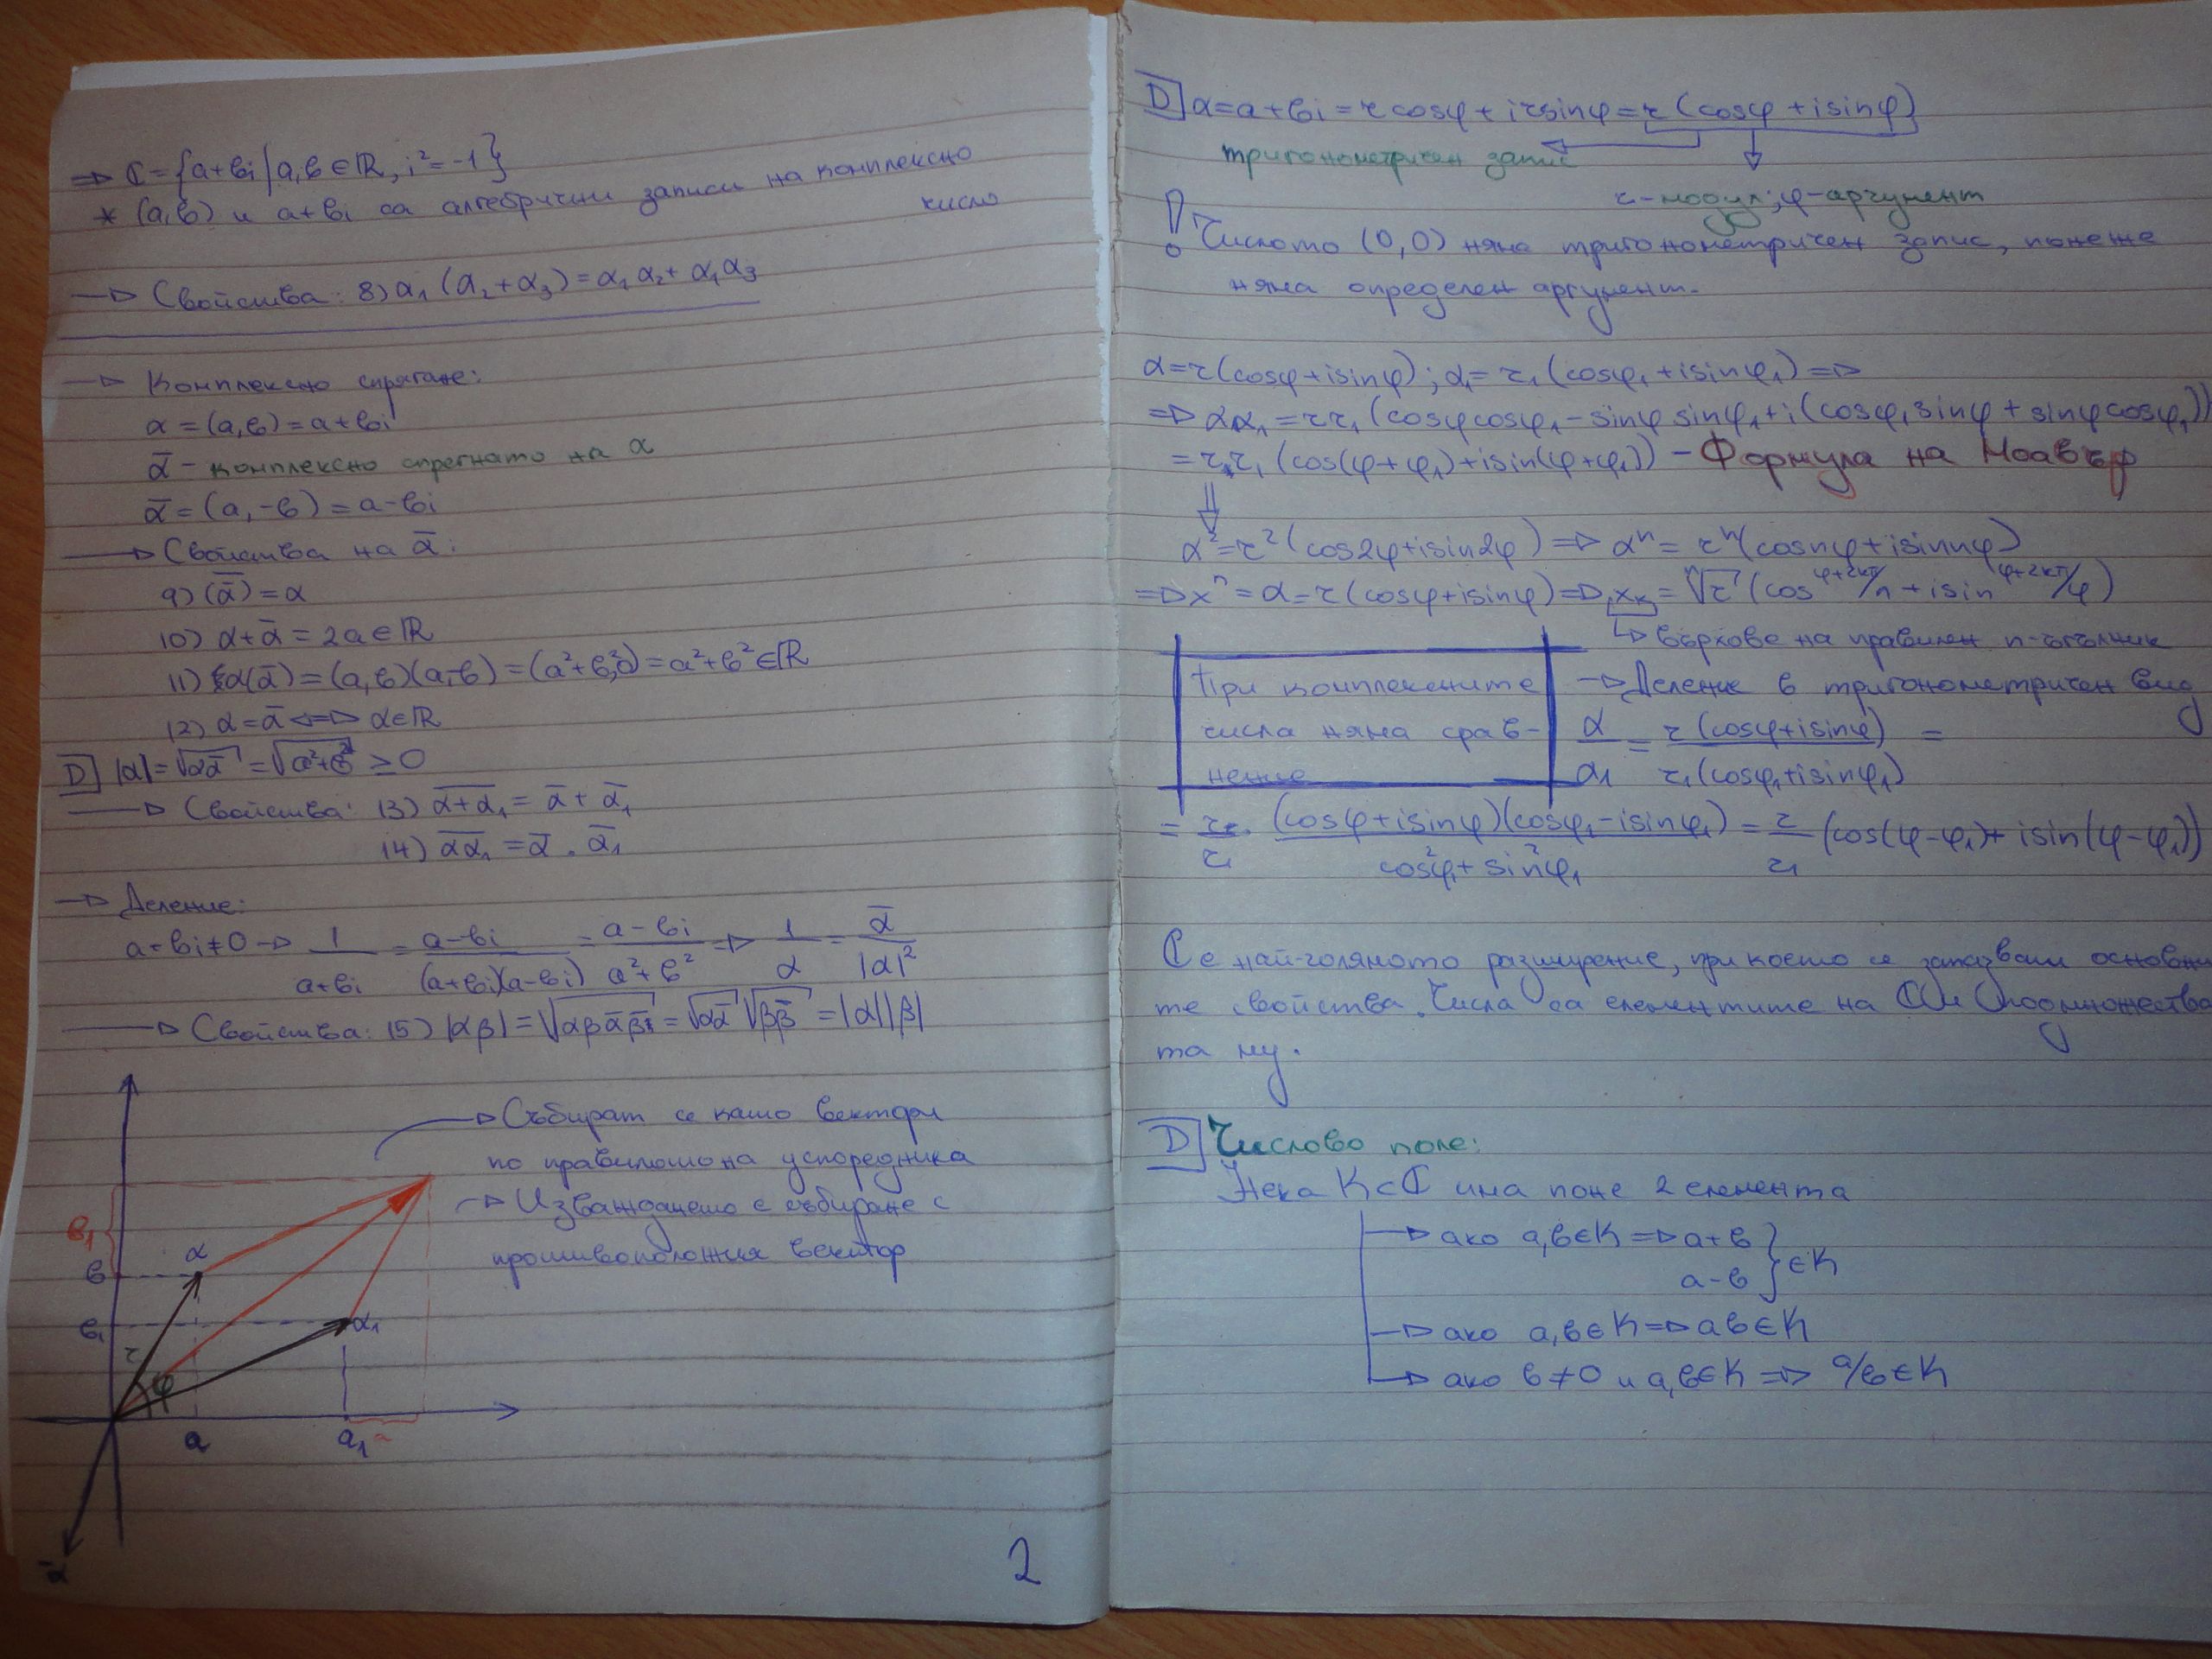 => ℂ={a+bi | a,b∈ℝ, i²=-1}
* (a,b) и a+bi са алгебрични записи на комплексно
число
→ Свойства: 8) α₁(α₂+α₃)=α₁α₂+α₁α₃
→ Комплексно спрягане:
α=(a,b)=a+bi
ᾱ - комплексно спрегнато на α
ᾱ=(a,-b)=a-bi
→ Свойства на ᾱ:
9) (ᾱ̄)=α
10) α+ᾱ=2a∈ℝ
11) α(ᾱ)=(a,b)(a,-b)=(a²+b²,0)=a²+b²∈ℝ
12) α=ᾱ <=> α∈ℝ
D |α|=√(αᾱ)=√(a²+b²) ≥0
→ Свойства: 13) \overline{α+α₁}=ᾱ+ᾱ₁
14) \overline{αα₁}=ᾱ.ᾱ₁
→ Деление:
a+bi≠0 → 1/(a+bi) = (a-bi)/((a+bi)(a-bi)) = (a-bi)/(a²+b²) => 1/α = ᾱ/|α|²
→ Свойства: 15) |αβ|=√(αβᾱβ̄)=√(αᾱ)√(ββ̄)=|α||β|
→ Събират се като вектори
по правилото на успоредника
→ Изваждането е събиране с
противоположния вектор
b₁
α
b
b₁
α₁
r
φ
a
a₁
a
2
D α=a+bi=r cosφ+i r sinφ=r(cosφ+isinφ)
тригонометричен запис
r-модул; φ-аргумент
! Числото (0,0) няма тригонометричен запис, понеже
няма определен аргумент.
α=r(cosφ+isinφ); α₁=r₁(cosφ₁+isinφ₁) =>
=> αα₁=rr₁(cosφcosφ₁-sinφsinφ₁+i(cosφ₁sinφ+sinφcosφ₁))
=r.r₁(cos(φ+φ₁)+isin(φ+φ₁)) - Формула на Моавър
⇓
α²=r²(cos2φ+isin2φ) => αⁿ=rⁿ(cosnφ+isinnφ)
=> xⁿ=α=r(cosφ+isinφ) => xₖ=ⁿ√r (cos φ+2kπ/n + isin φ+2kπ/φ)
↳ върхове на правилен n-ъгълник
При комплексните
числа няма срав-
нение
→ Деление в тригонометричен вид
α/α₁ = r(cosφ+isinφ)/r₁(cosφ₁+isinφ₁) =
= r/r₁ . (cosφ+isinφ)(cosφ₁-isinφ₁)/(cos²φ₁+sin²φ₁) = r/r₁ (cos(φ-φ₁)+isin(φ-φ₁))
ℂ е най-голямото разширение, при което се запазват основни
те свойства. Числа са елементите на ℂ и подмножества
та му.
D Числово поле:
Нека K⊂ℂ има поне 2 елемента
→ ако a,b∈K => a+b
a-b } ∈K
→ ако a,b∈K => ab∈K
→ ако b≠0 и a,b∈K => a/b∈K